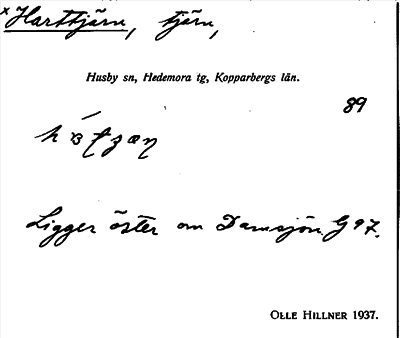 x Harttjärn, tjärn,
Husby sn, Hedemora tg, Kopparbergs län.
89
Ligger öster om Damsjön. G 97.
OLLE HILLNER 1937.